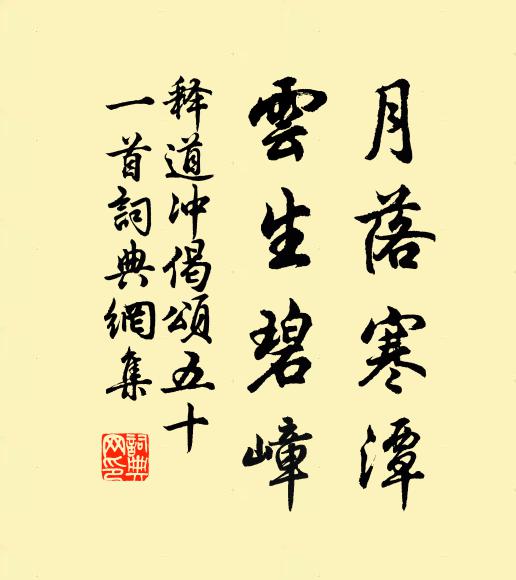 月落寒潭
雲生碧嶂
释道冲偈頌五十
一首詞典網集
詞典
网印